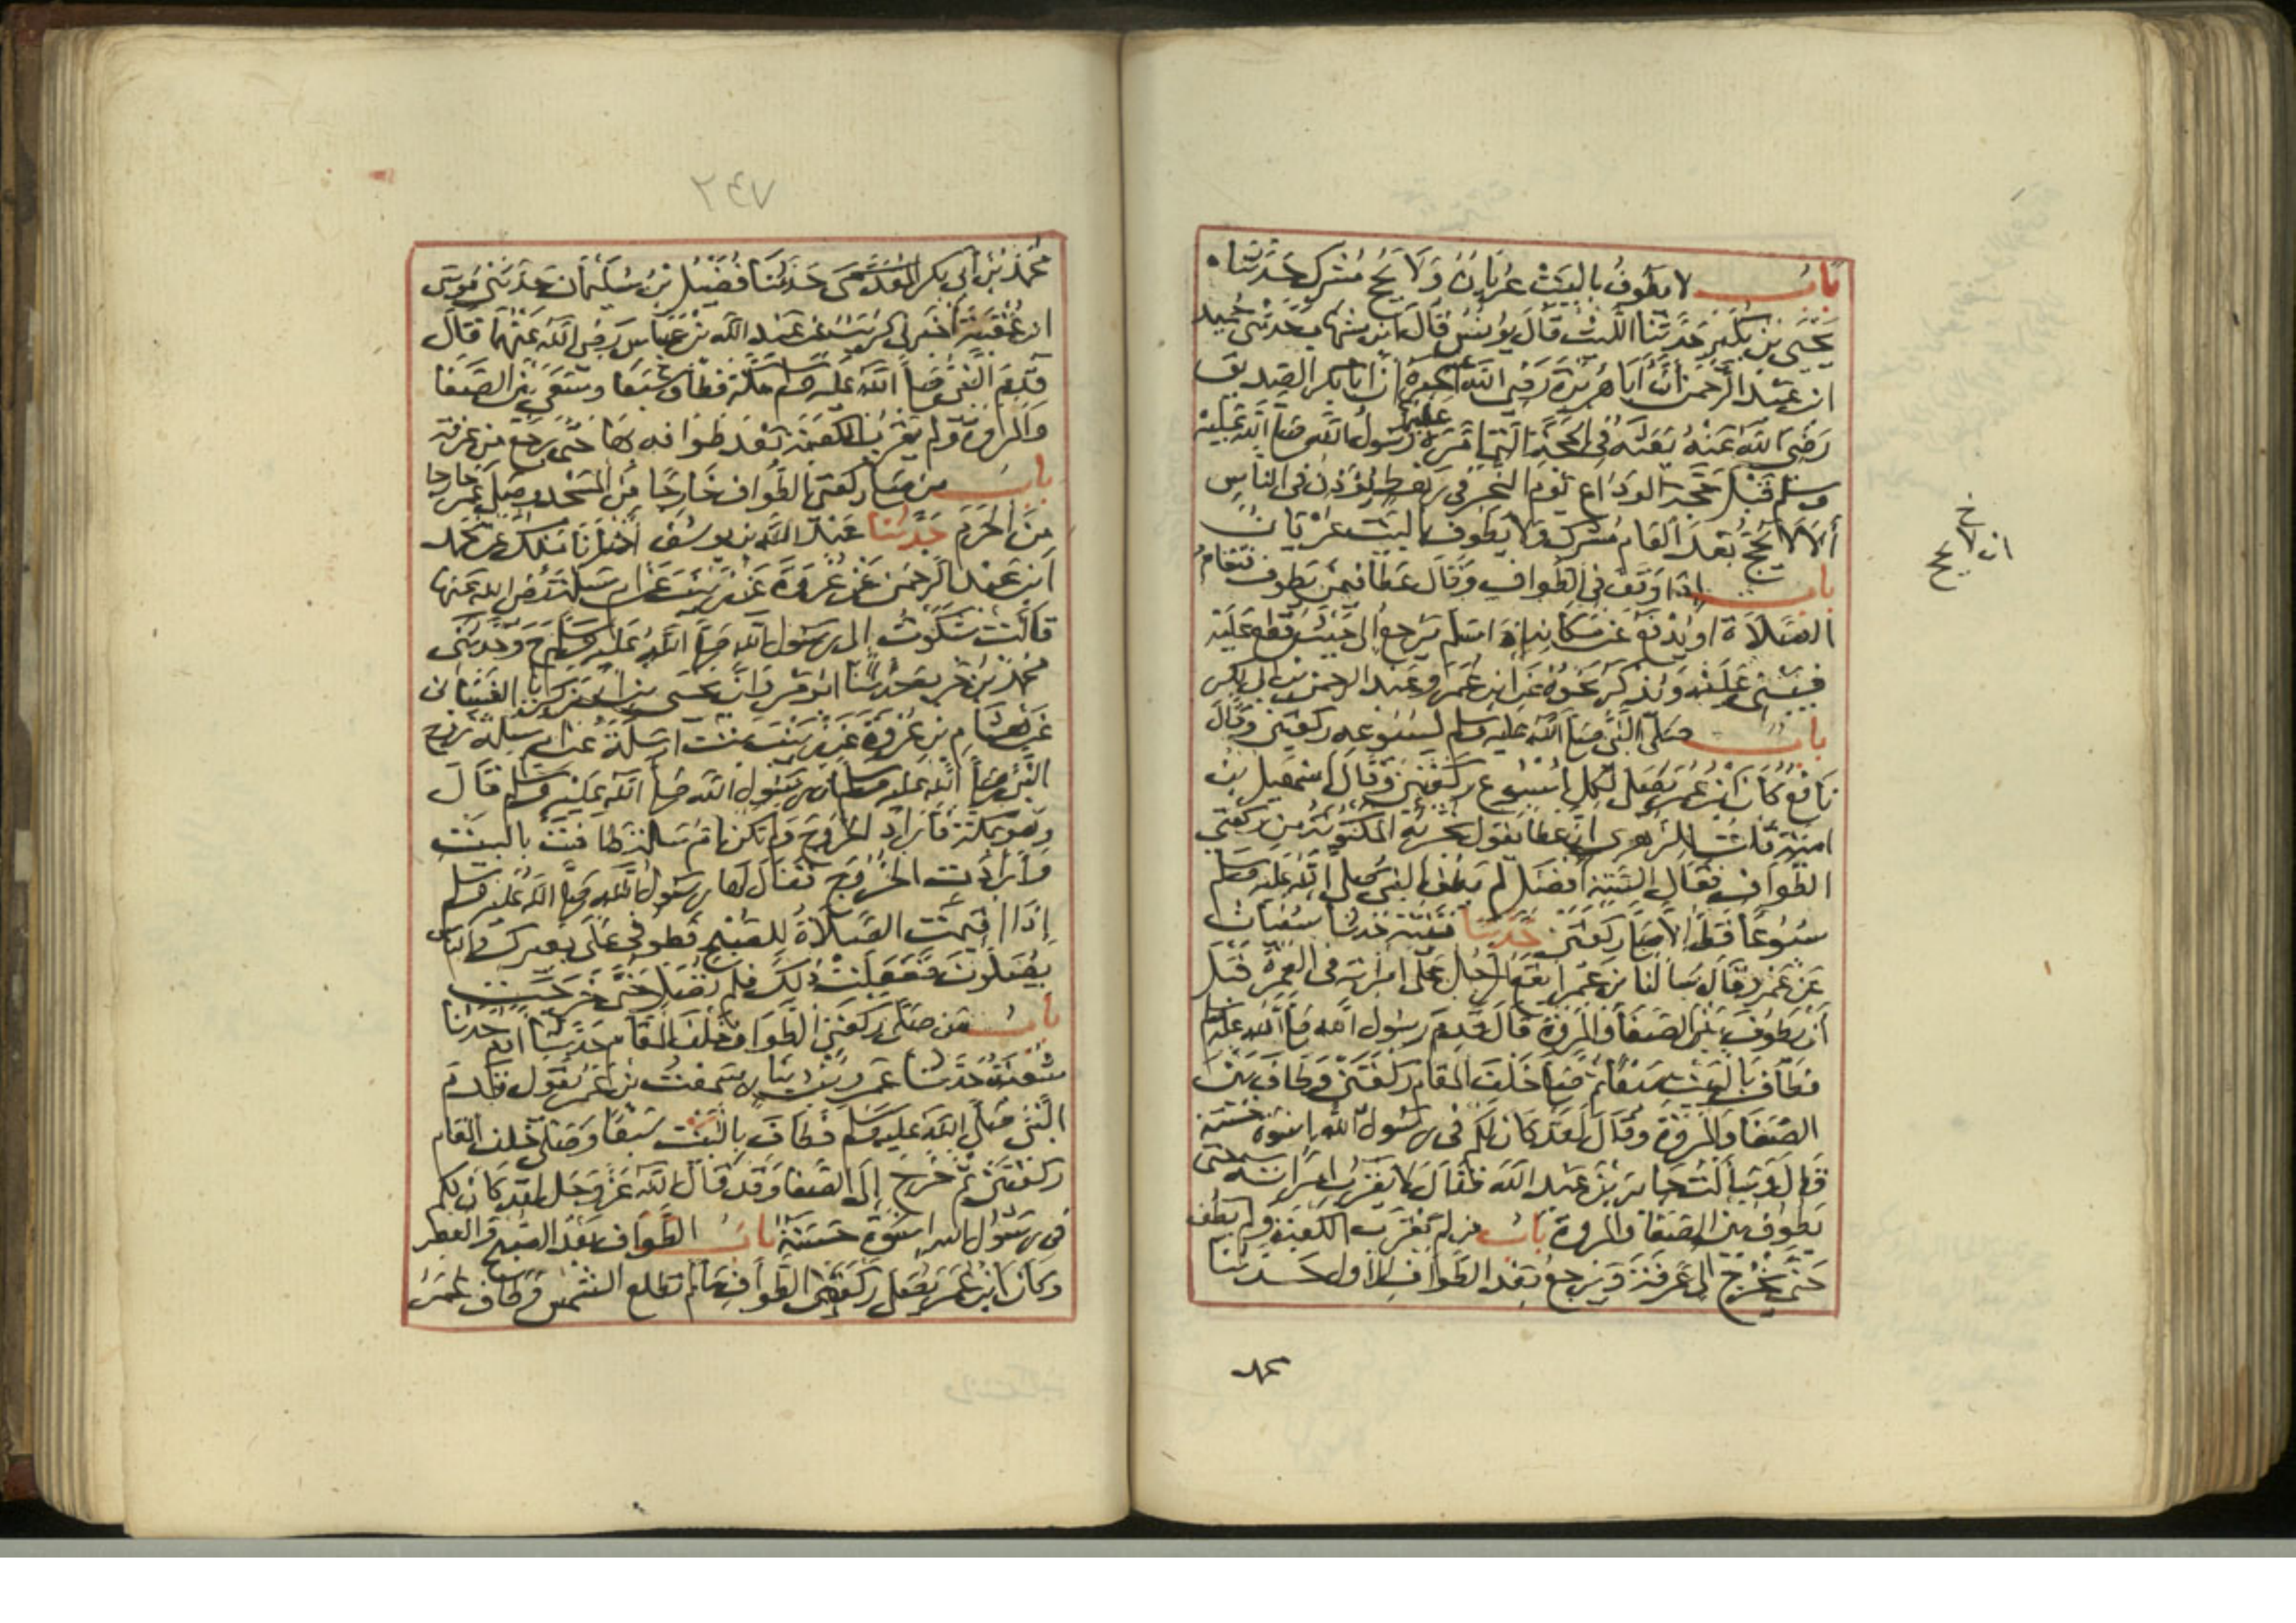 باب لا يطوف بالبيت عريان ولا يحج مشرك حدثنا
يحيى بن بكير حدثنا الليث قال يونس قال ابن شهاب حدثني حميد
ابن عبد الرحمن أن أبا هريرة رضي الله عنه اخبره ان ابا بكر الصديق
رضي الله عنه بعثه في الحجة التي امره عليها رسول الله صلى الله عليه
وسلم قبل حجة الوداع يوم النحر في رهط يؤذن في الناس
ألا لا يحج بعد العام مشرك ولا يطوف بالبيت عريان
باب إذا وقف في الطواف وقال عطا فيمن يطوف فتقام
الصلاة او يدفع عن مكانه إذا سلم يرجع إلى حيث قطع عليه
فيبني عليه ويذكر نحوه عن ابن عمر وعبد الرحمن بن ابي بكر
باب صلى النبي صلى الله عليه وسلم لسبوعه ركعتين وقال
نافع كان ابن عمر يصلي لكل اسبوع ركعتين وقال اسمعيل بن
امية قلت للزهري ان عطا يقول تجزئه المكتوبة من ركعتي
الطواف فقال السنة أفضل لم يطف النبي صلى الله عليه وسلم
سبوعا قط الا صلى ركعتين حدثنا قتيبة حدثنا سفيان
عن عمرو قال سالنا ابن عمر ايقع الرجل على امراته في العمرة قبل
أن يطوف بين الصفا والمروة قال قدم رسول الله صلى الله عليه وسلم
فطاف بالبيت سبعا ثم صلى خلف المقام ركعتين وطاف بين
الصفا والمروة وقال لقد كان لكم في رسول الله اسوة حسنة
قال وسألت جابر بن عبد الله فقال لا يقرب امراته حتى
يطوف بين الصفا والمروة باب من لم يقرب الكعبة ولم يطف
حتى يخرج الى عرفة ويرجع بعد الطواف الاول حدثنا
خ
ان لا يحج
محمد
٢٤٧
محمد بن أبي بكر المقدمي حدثنا فضيل بن سليمان حدثني موسى
ابن عقبة أخبرني كريب عن عبد الله بن عباس رضي الله عنهما قال
قدم النبي صلى الله عليه وسلم مكة فطاف سبعا وسعى بين الصفا
والمروة ولم يقرب الكعبة بعد طوافه بها حتى رجع من عرفة
باب من صلى ركعتي الطواف خارجا من المسجد وصلى عمر خارجا
من الحرم حدثنا عبد الله بن يوسف أخبرنا ملك عن محمد
ابن عبد الرحمن عن عروة عن زينب عن ام سلمة رضي الله عنها
قالت شكوت إلى رسول الله صلى الله عليه وسلم ح وحدثني
محمد بن حرب حدثنا ابو مروان يحيى بن ابي زكريا الغساني
عن هشام بن عروة عن زينب بنت ام سلمة عن ام سلمة زوج
النبي صلى الله عليه وسلم ان رسول الله صلى الله عليه وسلم قال
وهو بمكة فأراد الخروج ولم تكن ام سلمة طافت بالبيت
وأرادت الخروج فقال لها رسول الله صلى الله عليه وسلم
إذا اقيمت الصلاة للصبح فطوفي على بعيرك والناس
يصلون ففعلت ذلك فلم تصل حتى خرجت
باب من صلى ركعتي الطواف خلف المقام حدثنا ادم حدثنا
شعبة حدثنا عمرو بن دينار سمعت بن عمر يقول قدم
النبي صلى الله عليه وسلم فطاف بالبيت سبعا وصلى خلف المقام
ركعتين ثم خرج إلى الصفا وقد قال الله عز وجل لقد كان لكم
في رسول الله اسوة حسنة باب الطواف بعد الصبح والعصر
وكان ابن عمر يصلي ركعتي الطواف ما لم تطلع الشمس وطاف عمر